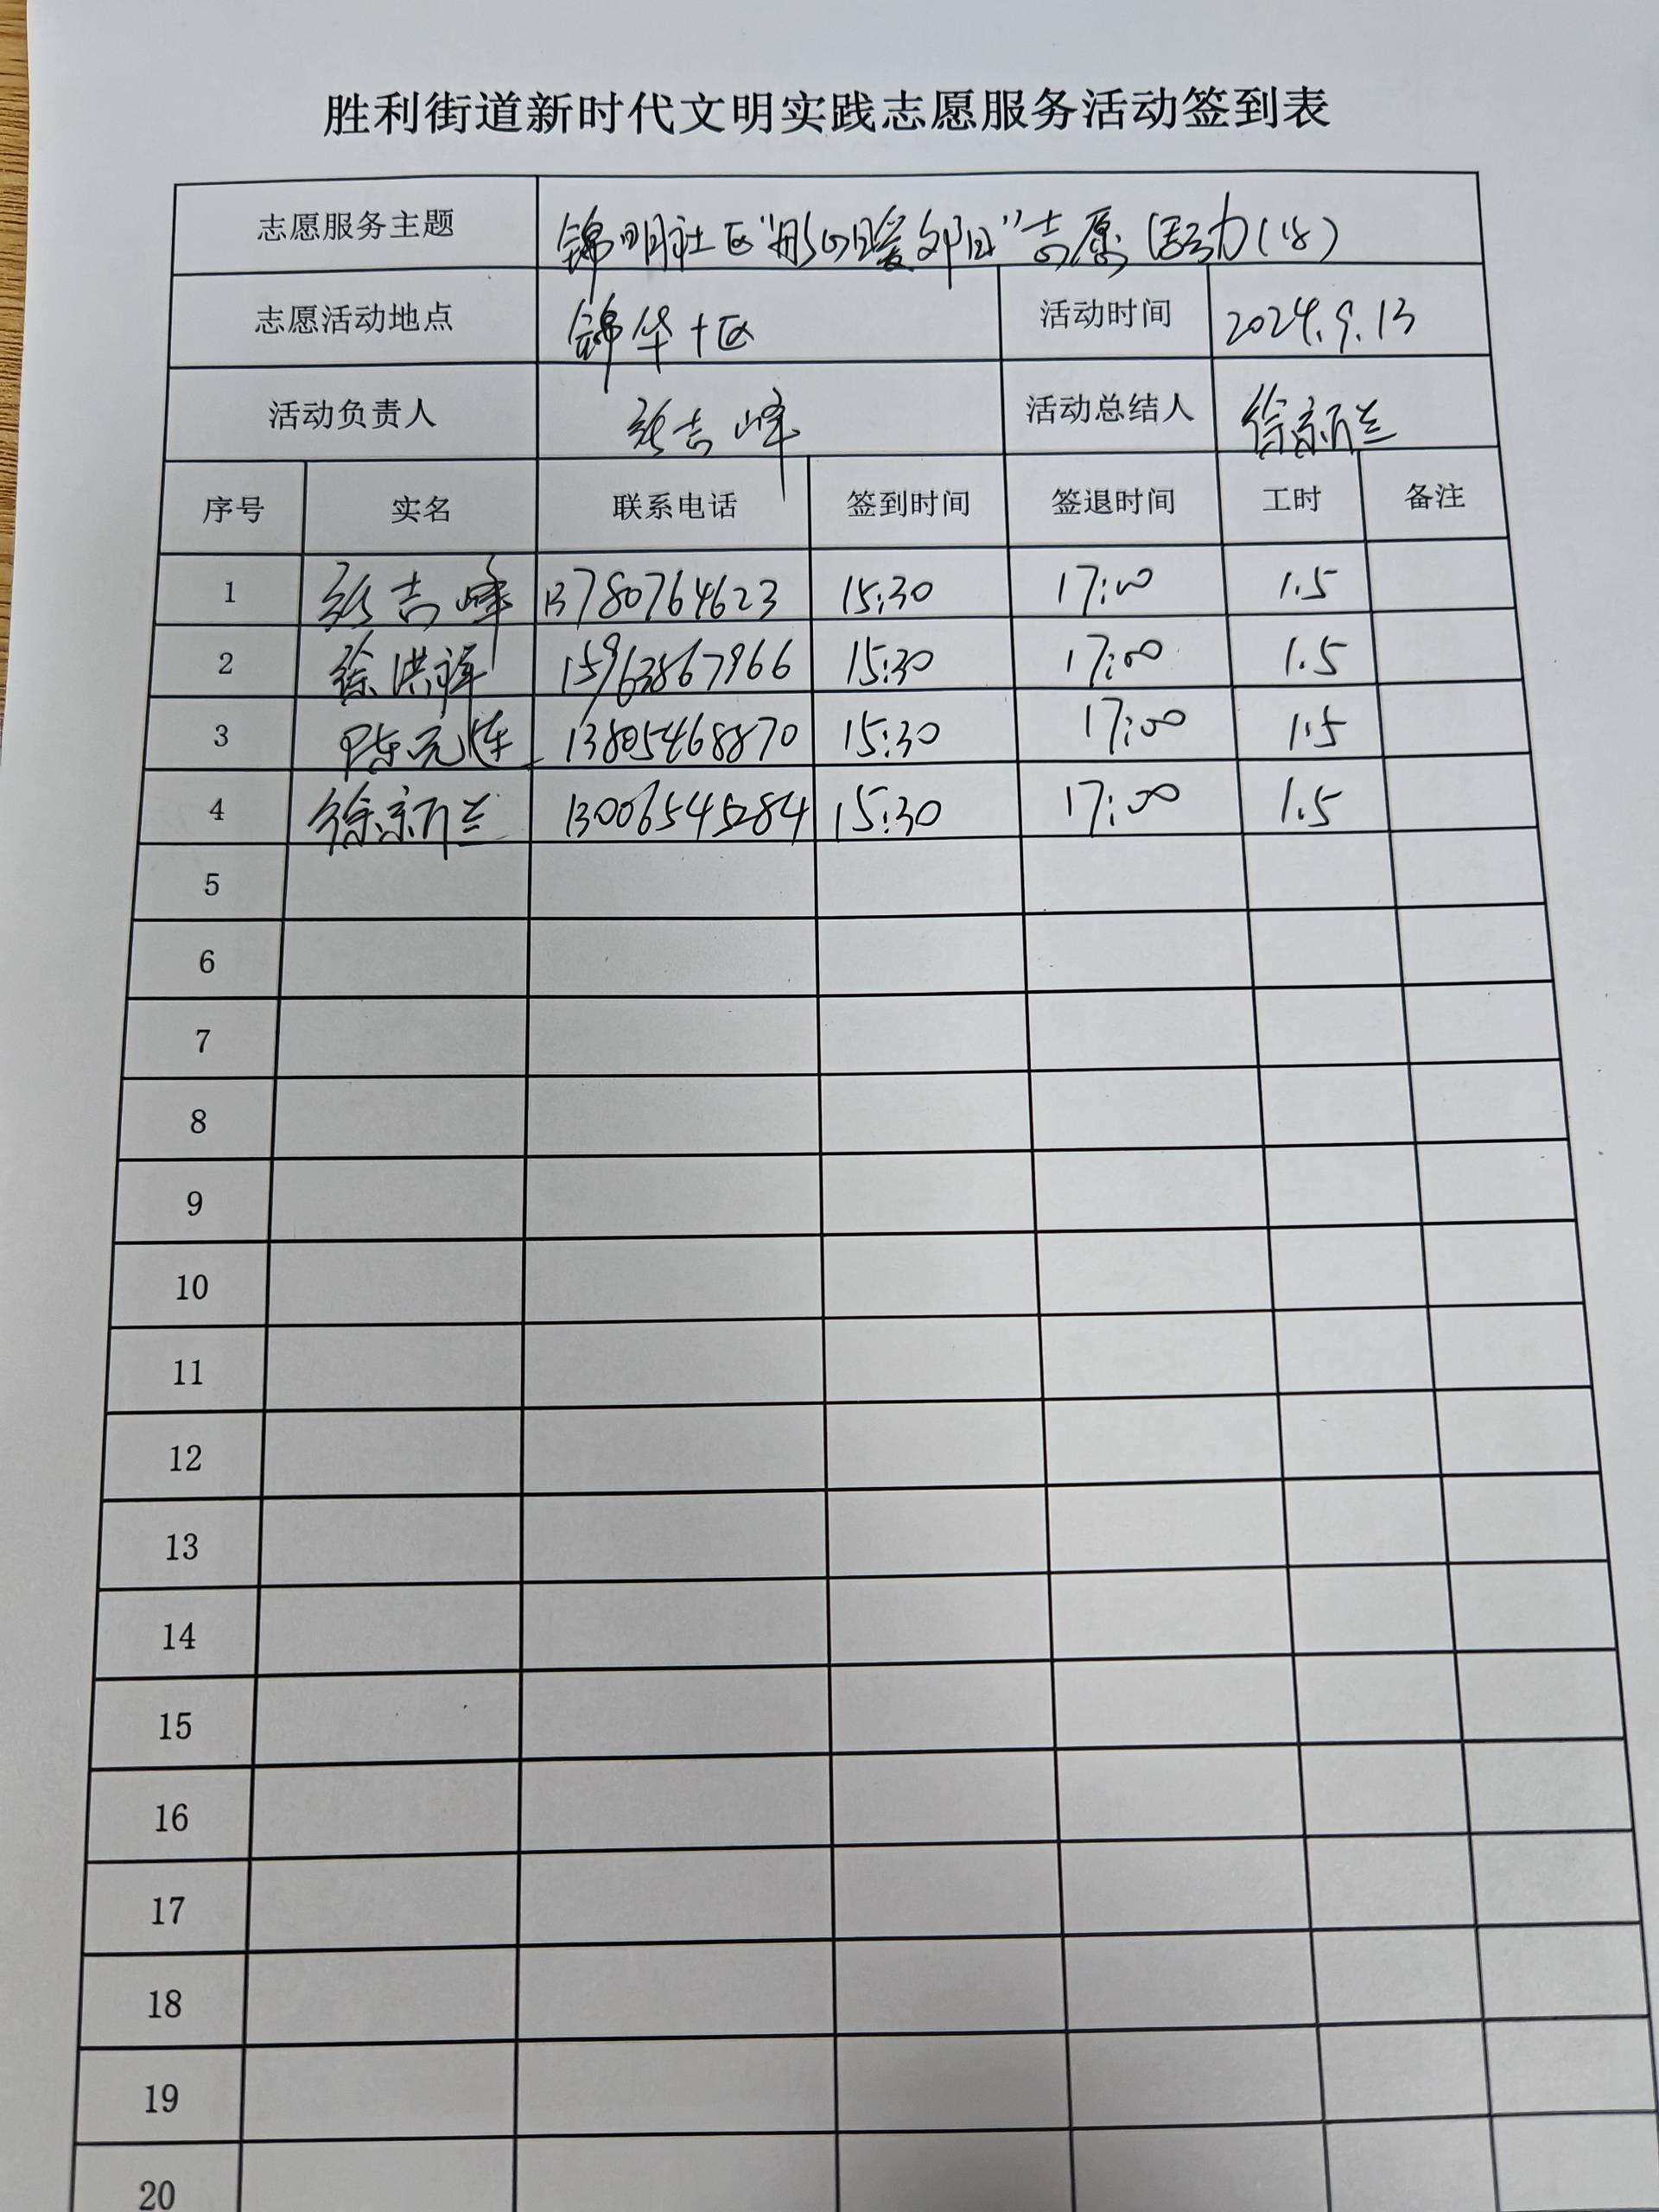 胜利街道新时代文明实践志愿服务活动签到表
志愿服务主题 锦明社区"彤心暖夕阳"志愿活动(18)
志愿活动地点 锦华十区 活动时间 2024.9.13
活动负责人 张吉峰 活动总结人 徐新兰
序号 实名 联系电话 签到时间 签退时间 工时 备注
1 张吉峰 13780764623 15:30 17:00 1.5
2 徐洪祥 15963867966 15:30 17:00 1.5
3 陈元莲 13805468870 15:30 17:00 1.5
4 徐新兰 13006545284 15:30 17:00 1.5
5
6
7
8
9
10
11
12
13
14
15
16
17
18
19
20